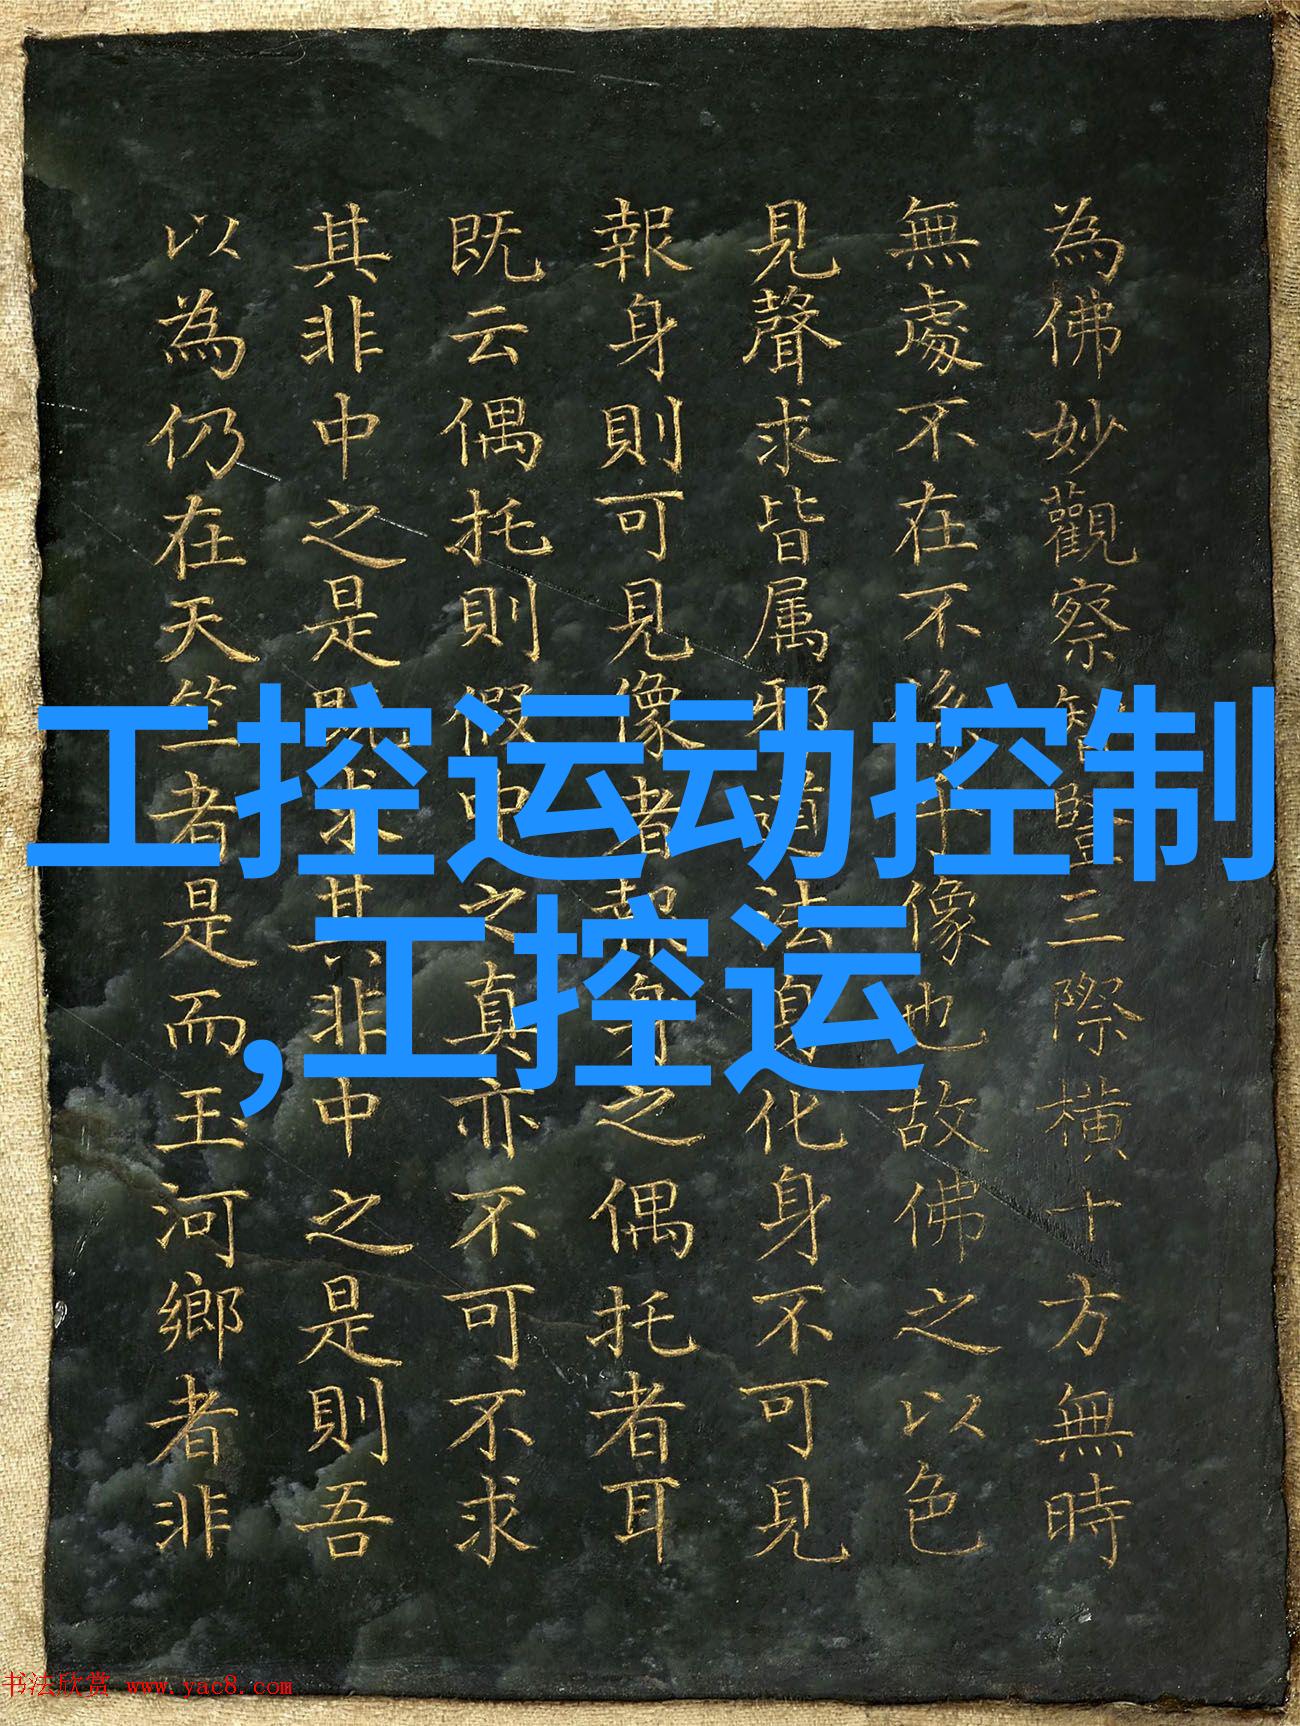 為佛妙觀察智豎三際橫十方無時
無處不在不于像也故佛之以色
見聲求皆属邪道法身化身不可見
報身則可見像者報身之偶托者耳
既云偶托則假中之真亦不可不求
其非中之是既求其非中之是則吾
以為仍在天竺者是而玉河鄉者非
工控运动控制
,工控运
书法欣赏 www.yac8.com